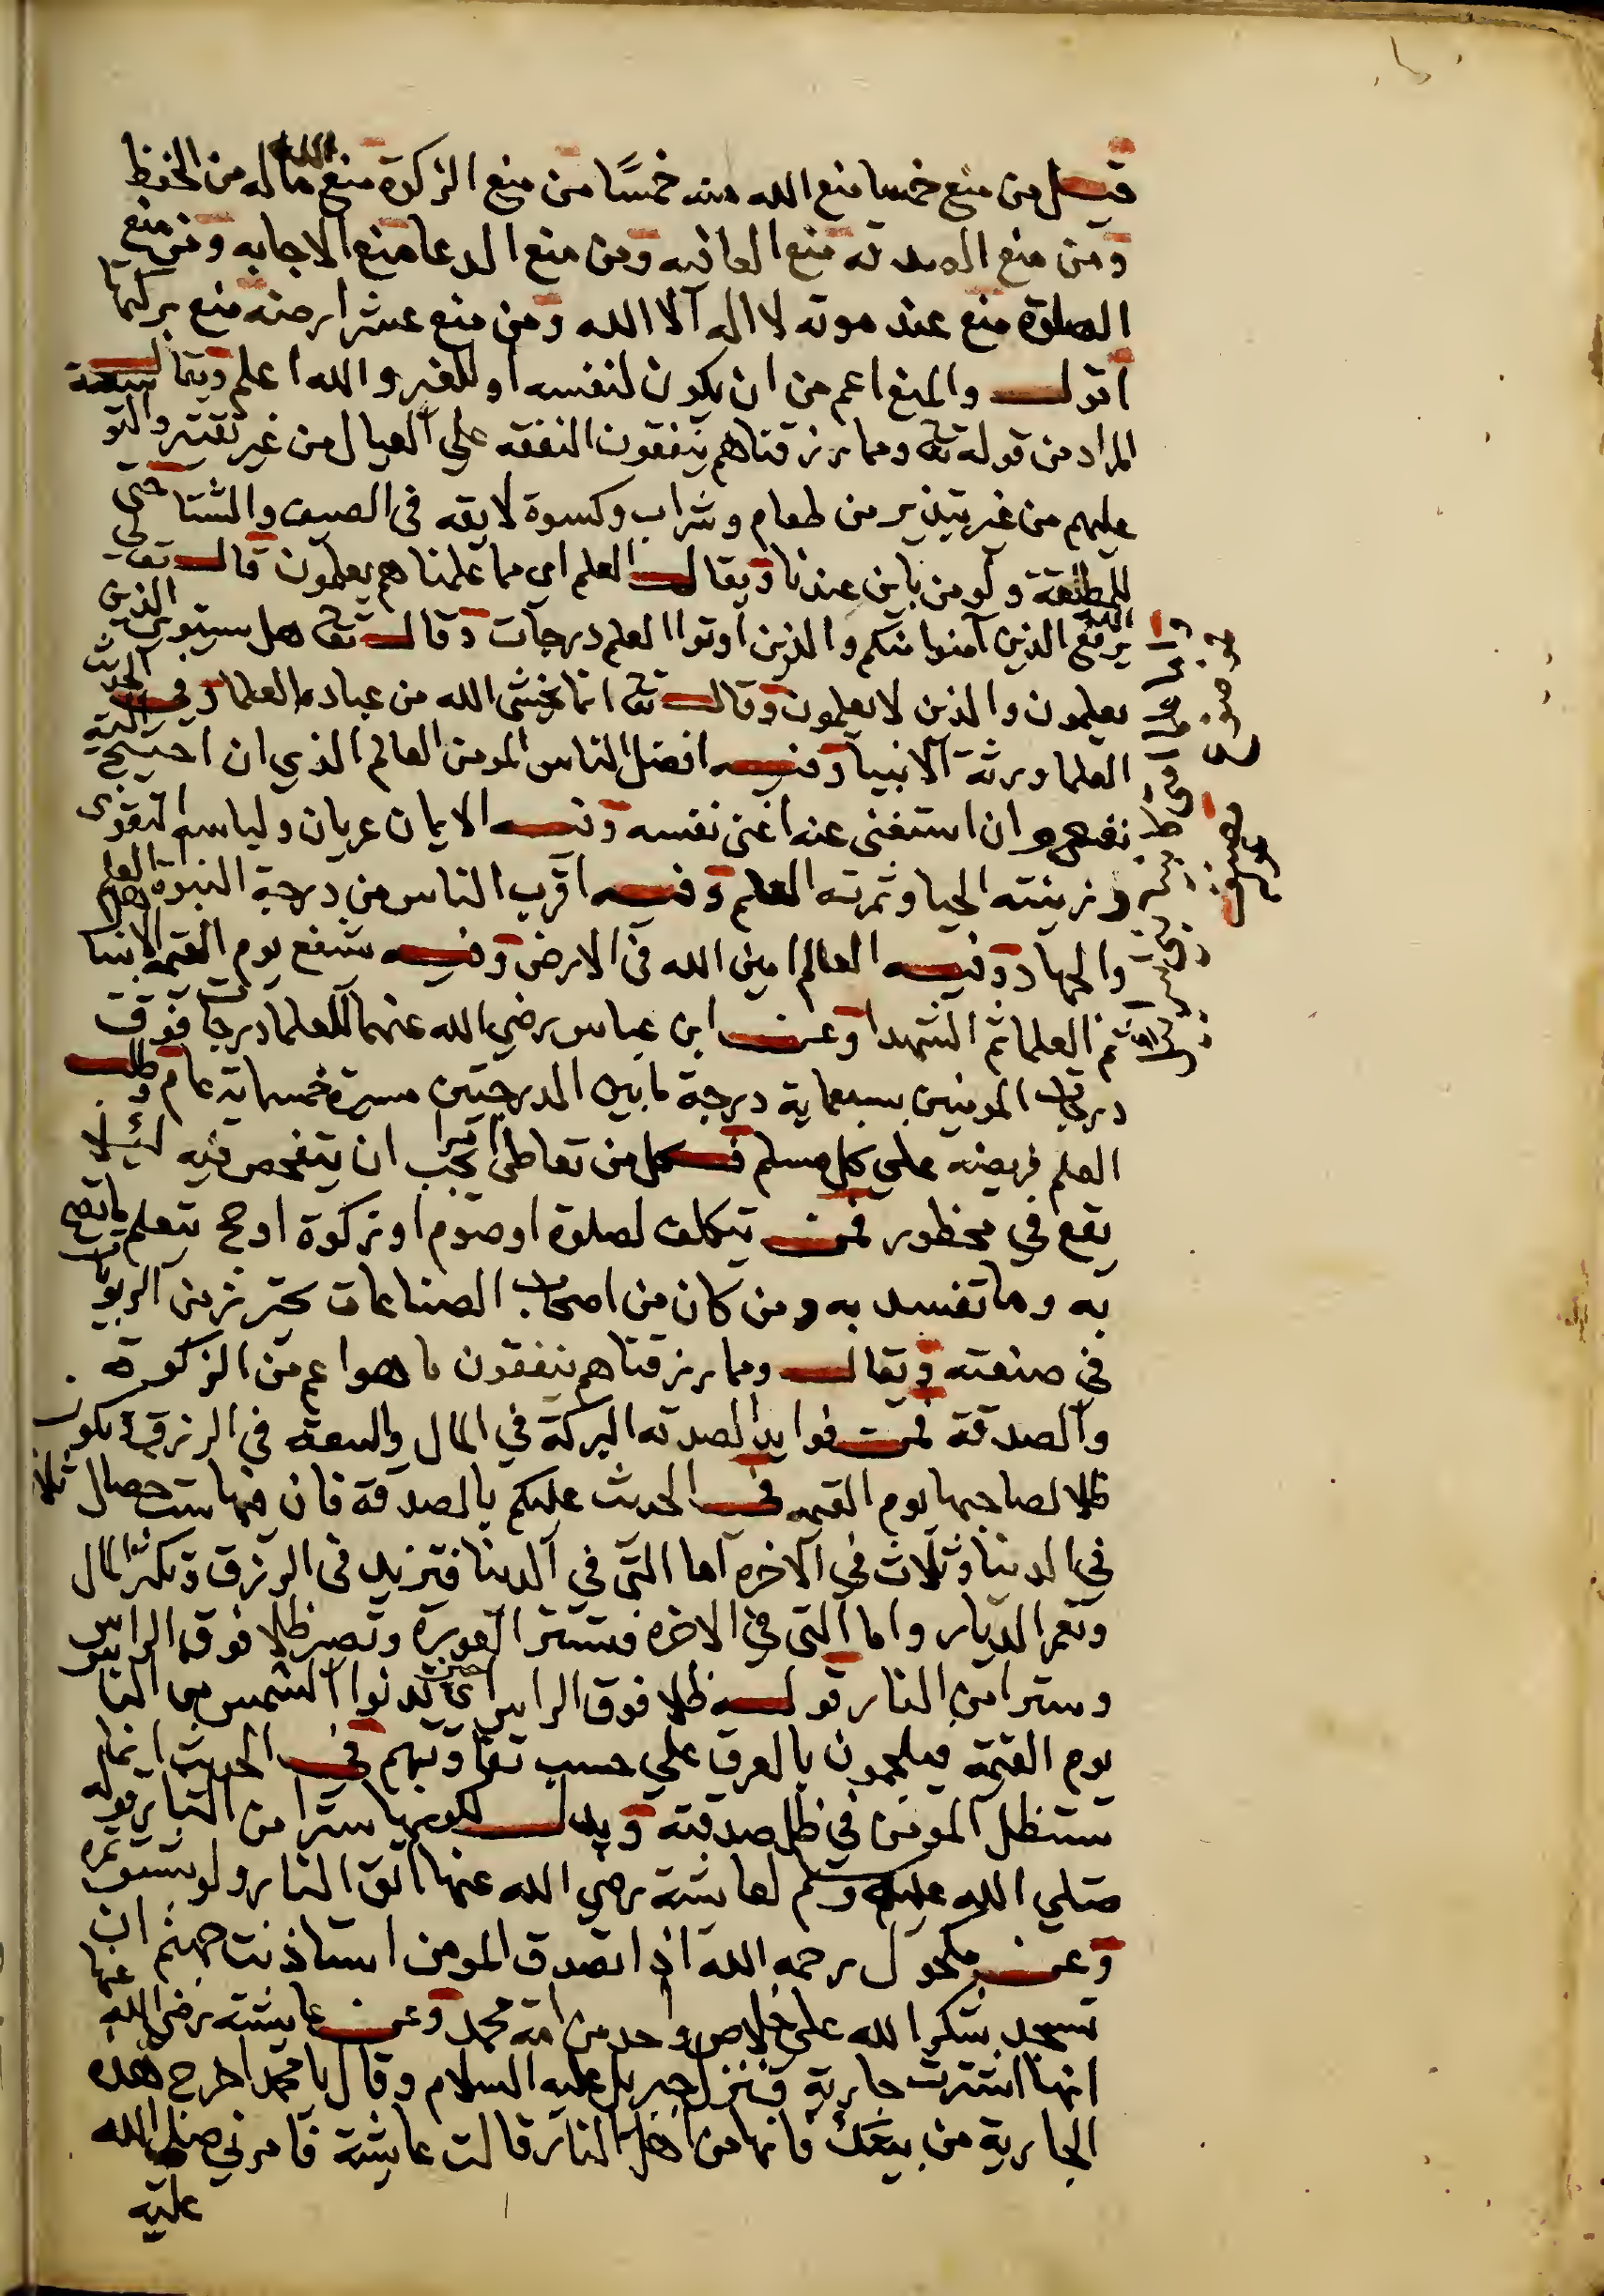 قيل من منع خمسا منع الله منه خمسًا من منع الزكوة منع الله ماله من الحفظ
ومن منع الصدقة منع العافيه ومن منع الدعا منع الاجابه ومن منع
الصلوة منع عند موته لا اله الا الله ومن منع عشر ارضه منع بركتها
اقول والمنع اعم من ان يكون لنفسه او للغير والله اعلم ويقال
المراد من قوله تعالى ومما رزقناهم ينفقون النفقه علي العيال من غير تقتير والتوسعة
عليهم من غير تبذير من طعام وشراب وكسوة لايقه في الصيف والشتا حتي
للمطلقة ولو من باين عندنا ويقال العلم اي مما علمنا هم يعلمون قال تعالي
يرفع الله الذين آمنوا منكم والذين اوتوا العلم درجات وقال تعالى هل يستوي الذين
يعلمون والذين لا يعلمون وقال تعالى انما يخشى الله من عباده العلما وفي الحديث
العلما ورثة الانبيا وفيه افضل الناس المومن العالم الذي ان احتيج اليه
نفع وان استغنى عنه اغنى نفسه وفيه الايمان عريان ولباسه التقوى
وزينته الحيا وثمرته العلم وفيه اقرب الناس من درجة النبوة اهل العلم
والجهاد وفيه العالم امين الله في الارض وفيه يشفع يوم القيمة الانبيا
ثم العلما ثم الشهدا وعن ابن عباس رضي الله عنهما للعلما درجات فوق
درجات المومنين بسبعماية درجة ما بين الدرجتين مسيرة خمسماية عام وطلب
العلم فريضه علي كل مسلم فكل من تعاطى امرا يجب ان يتفحص فيه ليلا
يقع في محظور فمن يتكلف لصلوة او صوم او زكوة او حج يتعلم ما تصح
به وما تفسد به ومن كان من اصحاب الصناعات يحترز من الربوا
في صنعته ويقال ومما رزقناهم ينفقون ما هو اعم من الزكوة
والصدقة فمن فوايد الصدقه البركة في المال والسعة في الرزق وتكون
ظلا لصاحبها يوم القيمه في الحديث عليكم بالصدقة فان فيها ست خصال ثلاث
في الدنيا وثلاث في الاخره اما التي في الدنيا فتزيد في الرزق وتكثر المال
وتعمر الديار واما التي في الاخره فتستر العورة وتصير ظلا فوق الراس
وسترا من النار قوله ظلا فوق الراس اي حين تدنوا الشمس من الناس
يوم القيمة فيلجمون بالعرق علي حسب تفاوتهم في الحديث انما
يستظل المومن في ظل صدقته ويدل لكونها سترا من النار قوله
صلي الله عليه وسلم لعايشة رضي الله عنها اتق النار ولو بشق تمرة
وعن مكحول رحمه الله اذا تصدق المومن استاذنت جهنم ان
تسجد شكرا لله على خلاص واحد من امة محمد وعن عايشة رضي الله عنها
انها اشترت جارية فنزل جبريل عليه السلام وقال يا محمد اخرج هذه
الجارية من بيتك فانها من اهل النار قالت عايشة فامرني صلى الله
عليه